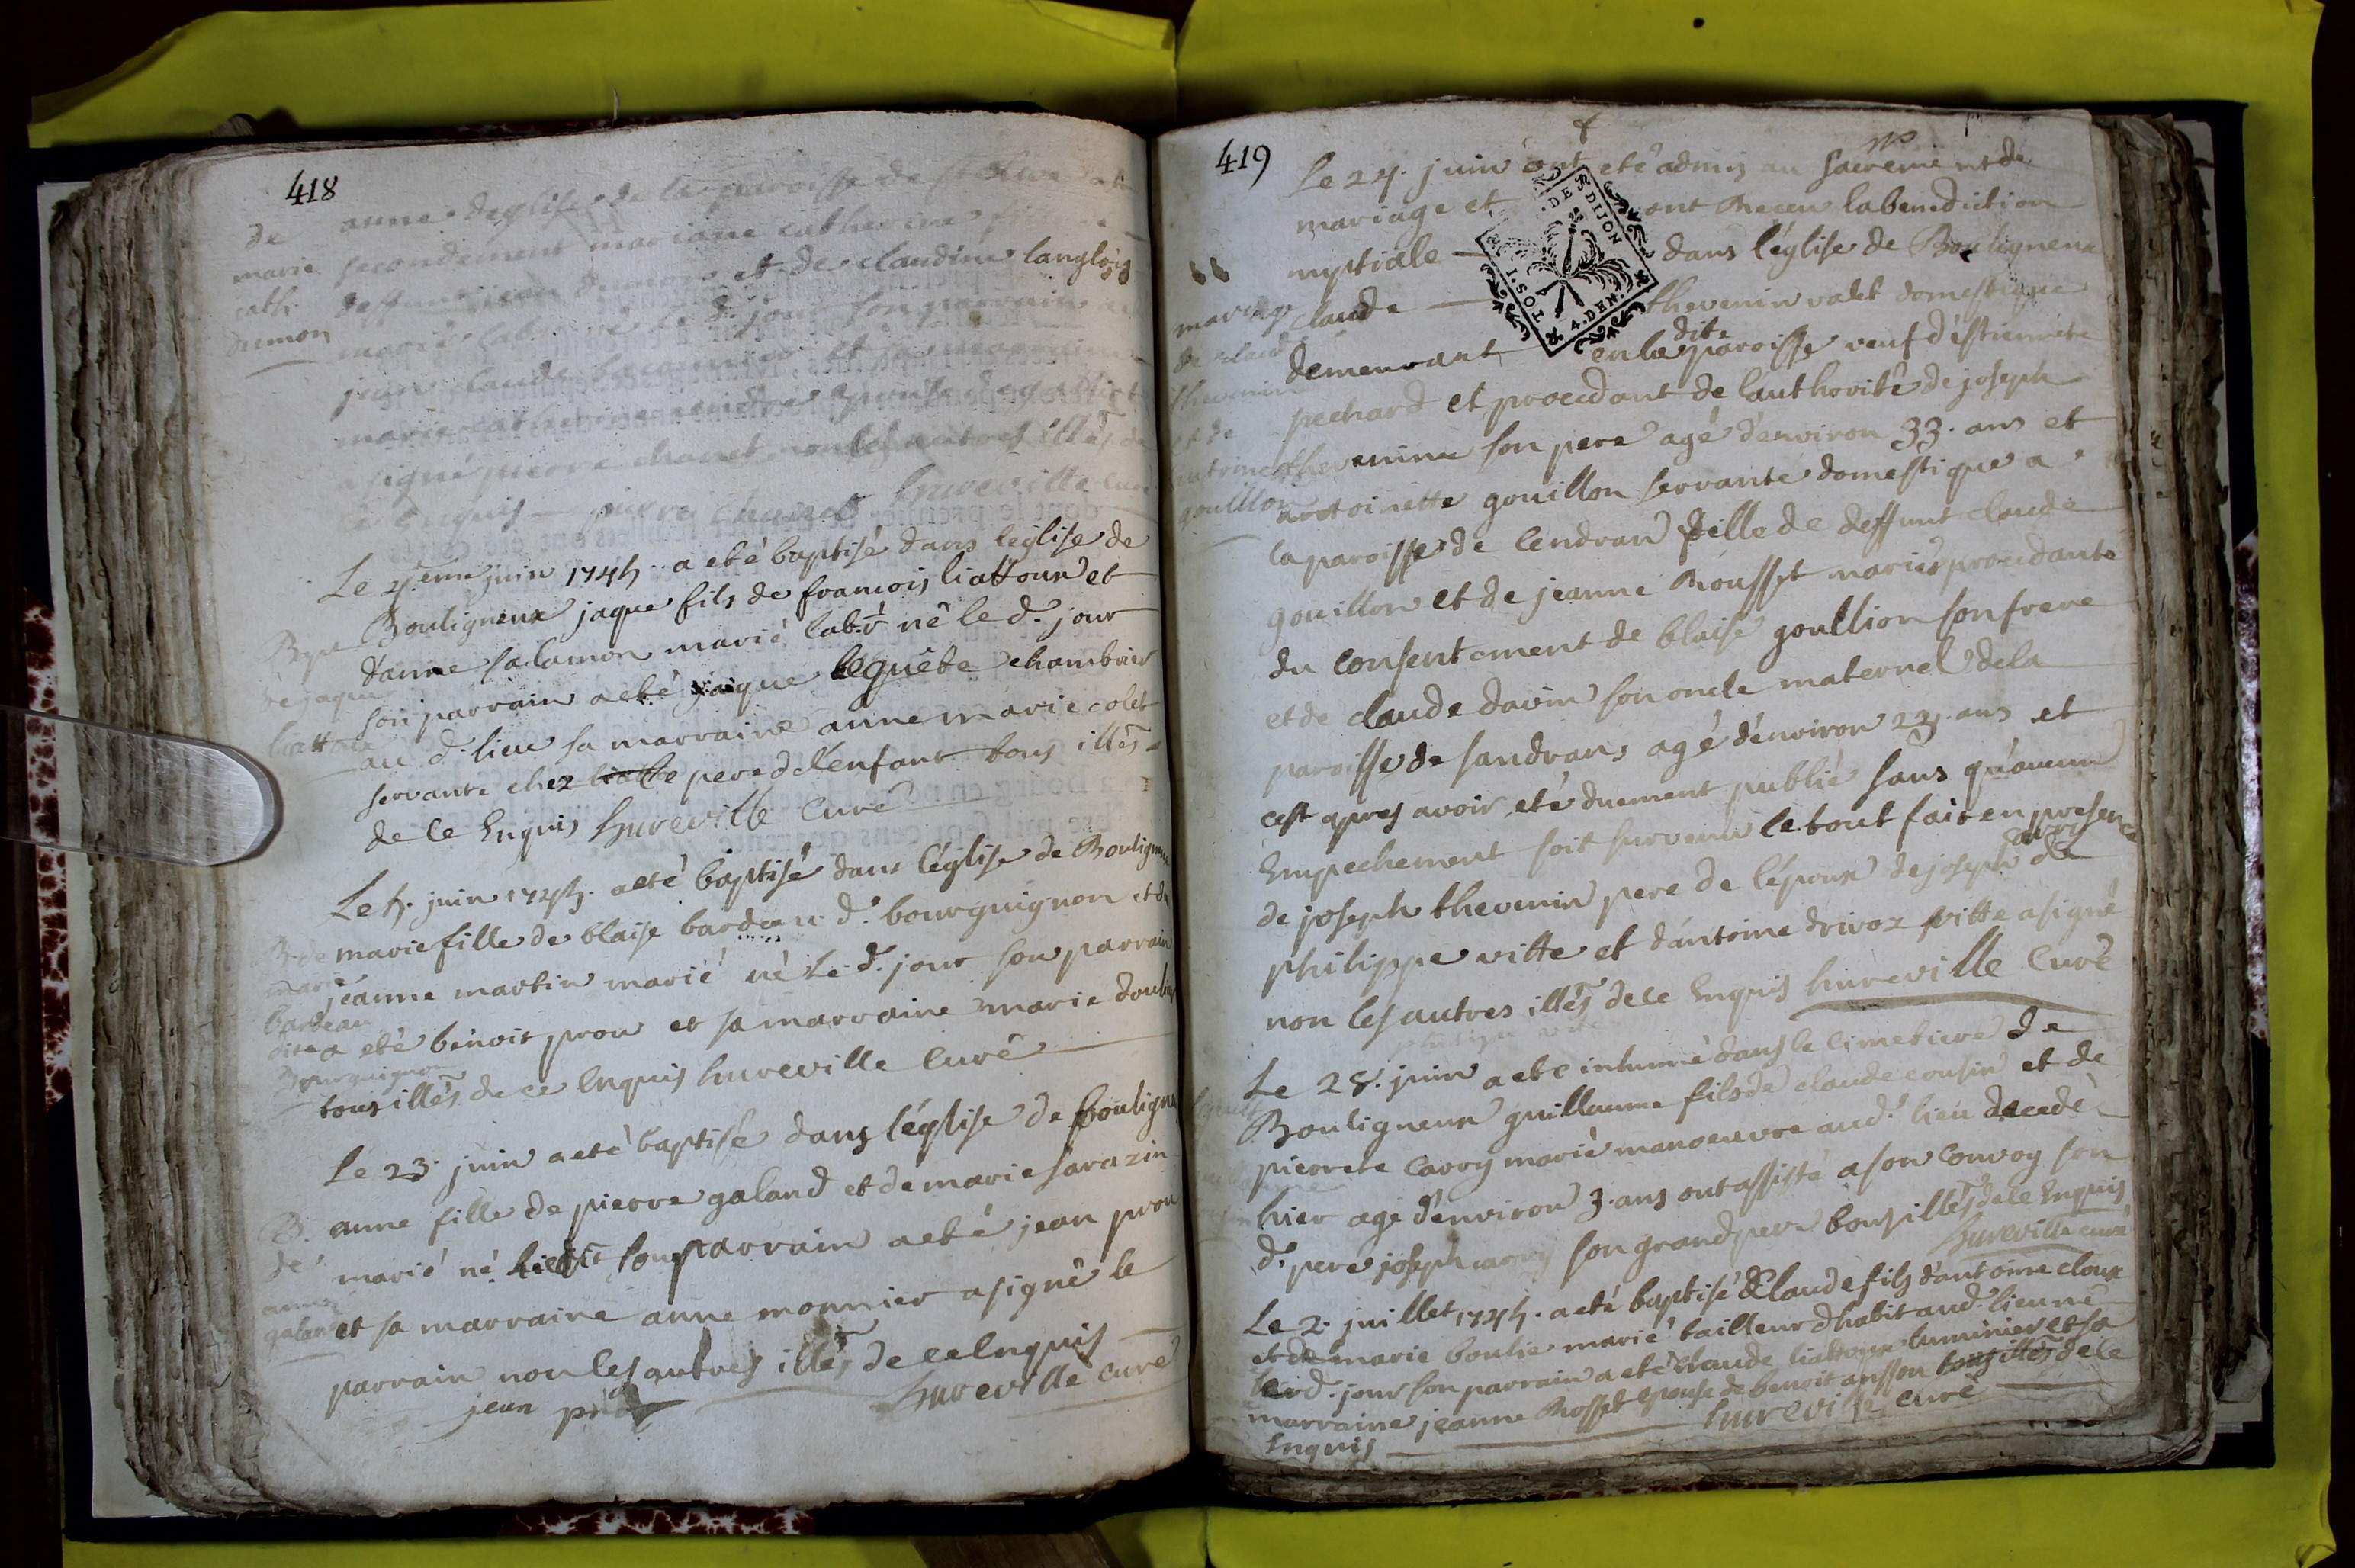 418
anne deglise de la paroisse de
de
secondement mariage catherine
marie
deffunt jean dumon et de claudine langlois
cath.
dumon
marié lab. né le d. jour son parrain
jean claude
marie catherine épouse de
a signé pierre chanet non les autres illés de
ce enquis pierre chanet hureville curé
Le 4eme juin 1745. a eté baptisé dans léglise de
Bouligneux jaque fils de francois liattoux et
Bpe
danne salamon marié lab.r né le d. jour
de jaque
son parrain a eté jaique lequête chambrier
liattoux
au d. lieu sa marraine anne marie colet
servante chez liatto pere de lénfant tous illés
de ce Enquis hureville Curé
Le 5. juin 1745. a eté baptisé dans léglise de Bouligneux
B. de marie fille de blaise bardeau d. bourguignon et de
marie
jeanne martin marié né le d. jour son parrain
bardeau
dite a eté benoit prou et sa marraine marie
Bourguignon
tous illés de ce Enquis hureville Curé
Le 23. juin a eté baptisé dans léglise de bouligneux
B. anne fille de pierre galand et de marie sarazin
de marié né hier son parrain a eté jean prou
anne
galand et sa marraine anne monnier a signé le
parrain non les autres illés de ce Enquis
jean prou hureville curé
419
Le 24. juin ont eté admis au sacrement de
mariage et ont Receu la benediction
nuptiale dans léglise de Bouligneux
DE DIJON
4. DEN.
1. SOL
mariage claude thevenin valet domestique
de claude
demeurant en la dite paroisse veuf déstiennete
thevenin
pechard et procedant de lauthorité de joseph
et de
antoinette thevenine son pere agé dénviron 33. ans et
gouillon
antoinette gouillon servante domestique a
la paroisse de Cendran fille de deffunt claude
gouillon et de jeanne Rousset mariés procedante
du Consentement de blaise goullion son frere
et de claude davin son oncle maternel de la
paroisse de sandrans agé dénviron 23. ans et
cest apres avoir eté duement publié sans quáucun
Empechement soit survenu le tout fait en presence
de joseph thevenin pere de lépoux de joseph de
philippe vitte et dántoine drivoz vitte a signé
non les autres illés de ce Enquis hureville Curé
Le 28. juin a eté inhumé dans le cimetiere de
Bouligneux guillaume fils de claude cousin et de
pierrete Carry marié manoeuvre aud. lieu decedé
hier agé dénviron 3. ans ont assisté a son Convoy son
d. pere joseph carry son grand pere tous illés de ce Enquis
hureville curé
Le 2. juillet 1745. a eté baptisé Claude fils dántoine cloux
et de marie boulie marié tailleur dhabit aud. lieu né
le d. jour son parrain a eté claude liattoux luminier et sa
marraine jeanne Rosset épouse de benoit ansson tous illés de ce
Enquis hureville curé